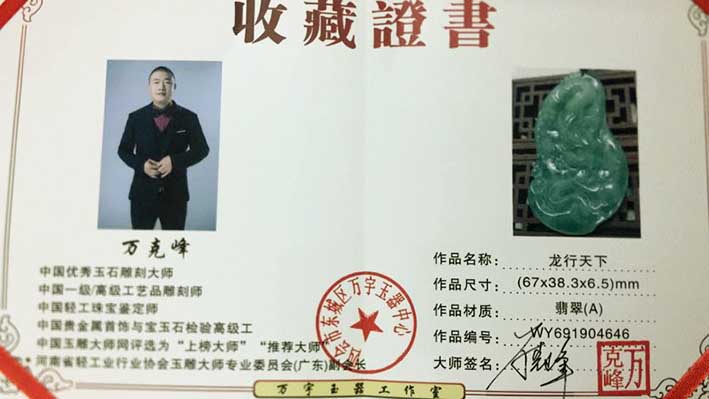 收藏證書
万克峰
中国优秀玉石雕刻大师
中国一级/高级工艺品雕刻师
中国轻工珠宝鉴定师
中国贵金属首饰与宝玉石检验高级工
中国玉雕大师网评选为“上榜大师”“推荐大师”
河南省轻工业行业协会玉雕大师专业委员会(广东)副会长
四会市东城区万宇玉器中心
作品名称：龙行天下
作品尺寸：(67x38.3x6.5)mm
作品材质：翡翠(A)
作品编号：WY691904646
大师签名：
万克峰
万宇玉器工作室